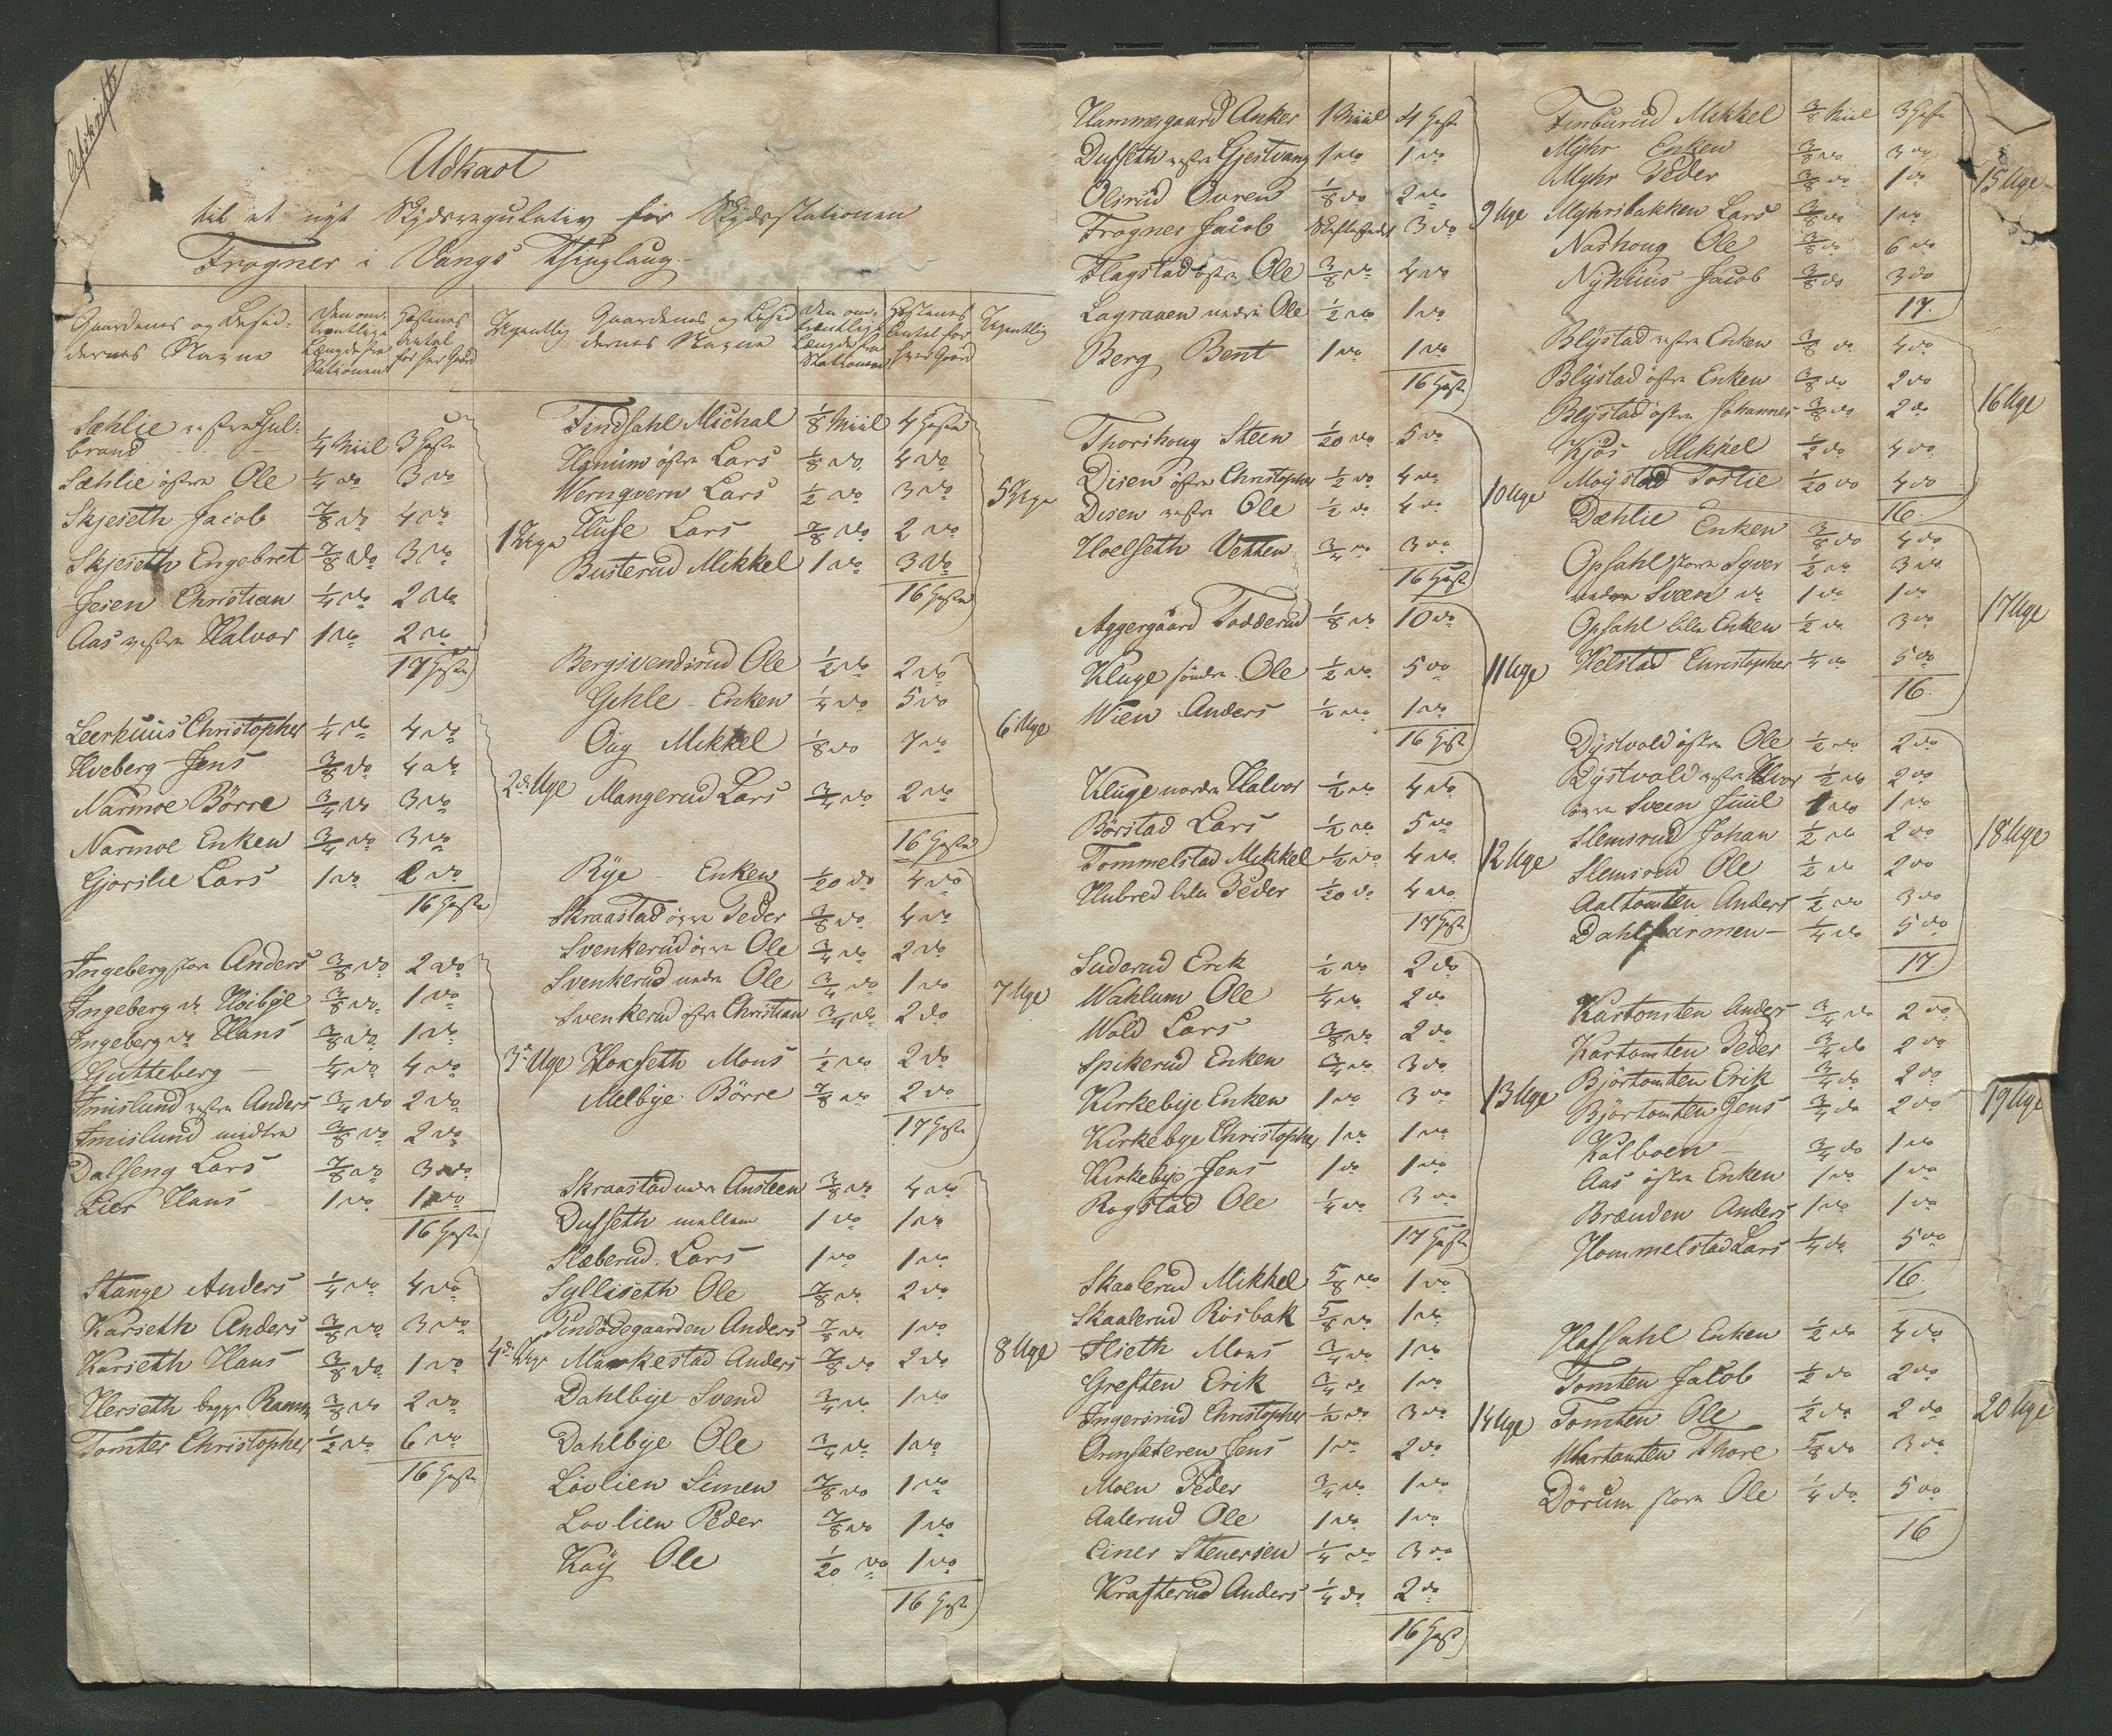 Afskrift
Udkast
til et nyt Skydsregulativ for Skydsstationen
Frogner i Vangs Thinglaug.
Gaardenes og Besid-
dernes Navne
Den om-
trentlige
Længde fra
Stationen
Hestenes
Antal
for hver Gaard
Ugentlig
Sæhlie vestre Gul-
brand ¼ Miil 3 Heste
Sæhlie östre Ole ¼ do 3 do
Skjeseth Jacob ⅞ do 4 do
Skjeseth Engebret ⅞ do 3 do
Jesen Christian ¼ do 2 do
Aas vestre Halvor 1 do 2 do
17 Heste
1 Uge
Leerhuus Christopher ¼ do 4 do
Hveberg Jens ⅜ do 4 do
Narmoe Börre ¾ do 3 do
Narmoe Enken ¾ do 3 do
Gjörslie Lars 1 do 2 do
16 Heste
2de Uge
Ingeberg store Anders ⅜ do 2 do
Ingeberg do Höibye ⅜ do 1 do
Ingeberg do Hans ⅜ do 1 do
Gutteberg — ¼ do 4 do
Imislund vestre Anders ¾ do 2 do
Imislund midtre ⅜ do 2 do
Dalseng Lars ⅞ do 3 do
Lier Hans 1 do 1 do
16 Heste
3de Uge
Stange Anders ¼ do 4 do
Karseth Anders ⅜ do 3 do
Karseth Hans ⅜ do 1 do
Herseth begge ⅜ do 2 do
Tomter Christopher ½ do 6 do
16 Heste
4de Uge
Gaardenes og Besid-
dernes Navne
Den om-
trentlige
Længde fra
Stationen
Hestenes
Antal for
hver Gaard
Ugentlig
Findsahl Michal ⅛ Miil 4 Heste
Hanum östre Lars ⅛ do 4 do
Wernqvern Lars ½ do 3 do
Huse Lars ⅞ do 2 do
Busterud Mikkel 1 do 3 do
16 Heste
5 Uge
Bergsvendsrud Ole ½ do 2 do
Gehle - Enken ¼ do 5 do
Oug Mikkel ⅛ do 7 do
Mangerud Lars ¾ do 2 do
16 Heste
6 Uge
Rye - Enken 1/20 do 4 do
Skraastad övre Peder ⅜ do 4 do
Svenkerud övre Ole ¾ do 2 do
Svenkerud nedre Ole ¾ do 1 do
Svenkerud östre Christian ¾ do 2 do
Hoxseth Mons ½ do 2 do
Melbye Börre ⅞ do 2 do
17 Heste
7 Uge
Skraastad nedre Ansteen ⅜ do 4 do
Dufseth mellem 1 do 1 do
Slæberud Lars 1 do 1 do
Sylliseth Ole ⅞ do 2 do
Pindödegaarden Anders ⅞ do 1 do
Markestad Anders ⅞ do 2 do
Dahlbye Svend ¾ do 1 do
Dahlbye Ole ¾ do 1 do
Lövlien Simen ⅞ do 1 do
Lövlien Peder ⅞ do 1 do
Kay Ole 1/20 do 1 do
16 Heste
8 Uge
Hammergaard Anker 1 Miil 4 Heste
Dufseth vestre Gjestvang 1 do 1 do
Olsrud Ouren ⅛ do 2 do
Frogner Jacob Skiftestedet 3 do
Flagstad östre Ole ⅜ do 4 do
Lagraaen nedre Ole ½ do 1 do
Berg Bent 1 do 1 do
16 Heste
9 Uge
Thorshoug Steen 1/20 do 5 do
Disen östre Christopher ½ do 4 do
Disen vestre Ole ½ do 4 do
Hoelseth Vetten ¾ do 3 do
16 Heste
10 Uge
Aggergaard Todderud ⅛ do 10 do
Kluge söndre Ole ½ do 5 do
Wien Anders ½ do 1 do
16 Heste
11 Uge
Kluge nordre Halvor ½ do 4 do
Börstad Lars ½ do 5 do
Tommelstad Mikkel ½ do 4 do
Hubred lille Peder 1/20 do 4 do
17 Heste
12 Uge
Suderud Erik ½ do 2 do
Wahlum Ole ¼ do 2 do
Wold Lars ⅜ do 2 do
Spikerud Enken ¾ do 3 do
Kirkebye Enken 1 do 3 do
Kirkebye Christopher 1 do 1 do
Kirkebye Jens 1 do 1 do
Rogstad Ole ¼ do 3 do
17 Heste
13 Uge
Skaalerud Mikkel ⅝ do 1 do
Skaalerud Rosbak ⅝ do 1 do
Flieth Mons ¾ do 1 do
Greften Erik ¾ do 1 do
Ingersrud Christopher ½ do 3 do
Ormsæteren Jens 1 do 2 do
Moen Peder ¾ do 1 do
Aalerud Ole 1 do 1 do
Einer Steuersen ¼ do 3 do
Krafterud Anders ¼ do 2 do
16 Heste
14 Uge
Finburud Mikkel ⅜ Miil 3 Heste
Myhr Enken ⅜ do 3 do
Myhr Peder ⅜ do 1 do
Myhrsbakken Lars ⅜ do 1 do
Nashoug Ole ⅜ do 6 do
Nyhuus Jacob ⅜ do 3 do
17.
15 Uge
Blystad vestre Enken ⅜ do 4 do
Blystad östre Enken ⅜ do 2 do
Blystad östre Johannes ⅜ do 2 do
Kjös Mikkel ½ do 4 do
Moystad Toslie 1/20 do 4 do
16.
16 Uge
Dæhlie Enken ⅜ do 4 do
Opsahl store Syver ½ do 3 do
nedre Sveen do 1 do 1 do
Opsahl lille Enken ½ do 3 do
Helstad Christopher ¼ do 5 do
16.
17 Uge
Dystvold östre Ole ½ do 2 do
Dystvold vestre Halvor ½ do 2 do
övre Sveen Juul 1 do 1 do
Slemsrud Johan ½ do 2 do
Slemsrud Ole ½ do 2 do
Aaltomten Anders ½ do 3 do
Dahlfarmen — ¼ do 5 do
17.
18 Uge
Kartomten Anders ¾ do 2 do
Kartomten Peder ¾ do 2 do
Björtomten Erik ¾ do 2 do
Björtomten Jens ¾ do 2 do
Kalboen — ¾ do 1 do
Aas östre Enken 1 do 1 do
Brænden Anders 1 do 1 do
Hommelstad Lars ¼ do 5 do
16.
19 Uge
Hafsahl Enken ½ do 4 do
Tomten Jacob ½ do 2 do
Tomten Ole ½ do 2 do
Thore ⅝ do 3 do
Dörum store Ole ¼ do 5 do
16
20 Uge